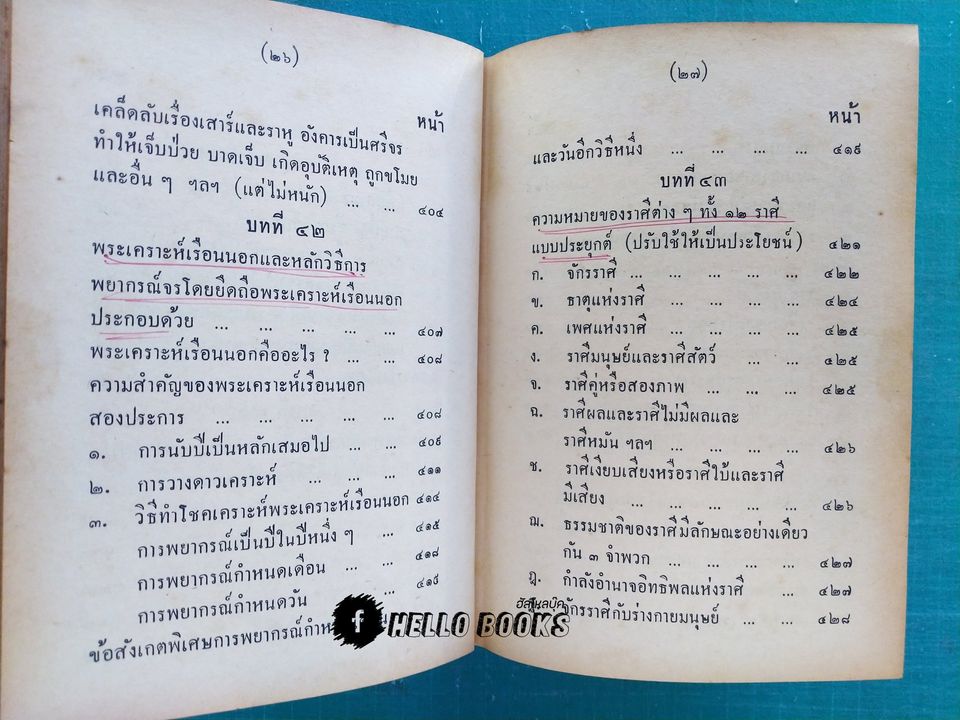 (๒๖)
หน้า
เคล็ดลับเรื่องเสาร์และราหู อังคารเป็นศรีจร
ทำให้เจ็บป่วย บาดเจ็บ เกิดอุบัติเหตุ ถูกขโมย
และอื่น ๆ ฯลฯ (แต่ไม่หนัก) ... ... ๔๐๔
บทที่ ๔๒
พระเคราะห์เรือนนอกและหลักวิธีการ
พยากรณ์จรโดยยึดถือพระเคราะห์เรือนนอก
ประกอบด้วย ... ... ... ... ... ๔๐๗
พระเคราะห์เรือนนอกคืออะไร ? ... ... ๔๐๘
ความสำคัญของพระเคราะห์เรือนนอก
สองประการ ... ... ... ... ๔๐๘
๑. การนับปีเป็นหลักเสมอไป ... ... ๔๐๙
๒. การวางดาวเคราะห์ ... ... ... ๔๑๑
๓. วิธีทำโชคเคราะห์พระเคราะห์เรือนนอก ๔๑๔
การพยากรณ์เป็นปีในปีหนึ่ง ๆ ... ๔๑๕
การพยากรณ์กำหนดเดือน ... ... ๔๑๘
การพยากรณ์กำหนดวัน ... ๔๑๙
ข้อสังเกตพิเศษการพยากรณ์กำห
(๒๗)
หน้า
และวันอีกวิธีหนึ่ง ... ... ... ... ๔๑๙
บทที่ ๔๓
ความหมายของราศีต่าง ๆ ทั้ง ๑๒ ราศี
แบบประยุกต์ (ปรับใช้ให้เป็นประโยชน์) ๔๒๑
ก. จักรราศี ... ... ... ... ... ๔๒๒
ข. ธาตุแห่งราศี ... ... ... ... ๔๒๔
ค. เพศแห่งราศี ... ... ... ... ๔๒๕
ง. ราศีมนุษย์และราศีสัตว์ ... ... ๔๒๕
จ. ราศีคู่หรือสองภาพ ... ... ... ๔๒๕
ฉ. ราศีผลและราศีไม่มีผลและ
ราศีหมัน ฯลฯ ... ... ... ... ๔๒๖
ช. ราศีเงียบเสียงหรือราศีใบ้และราศี
มีเสียง ... ... ... ... ... ๔๒๖
ฌ. ธรรมชาติของราศีมีลักษณะอย่างเดียว
กัน ๓ จำพวก ... ... ... ... ๔๒๗
ฎ. กำลังอำนาจอิทธิพลแห่งราศี ... ๔๒๗
จักรราศีกับร่างกายมนุษย์ ... ... ๔๒๘
ฮัลโหลบุ๊ค
f HELLO BOOKS